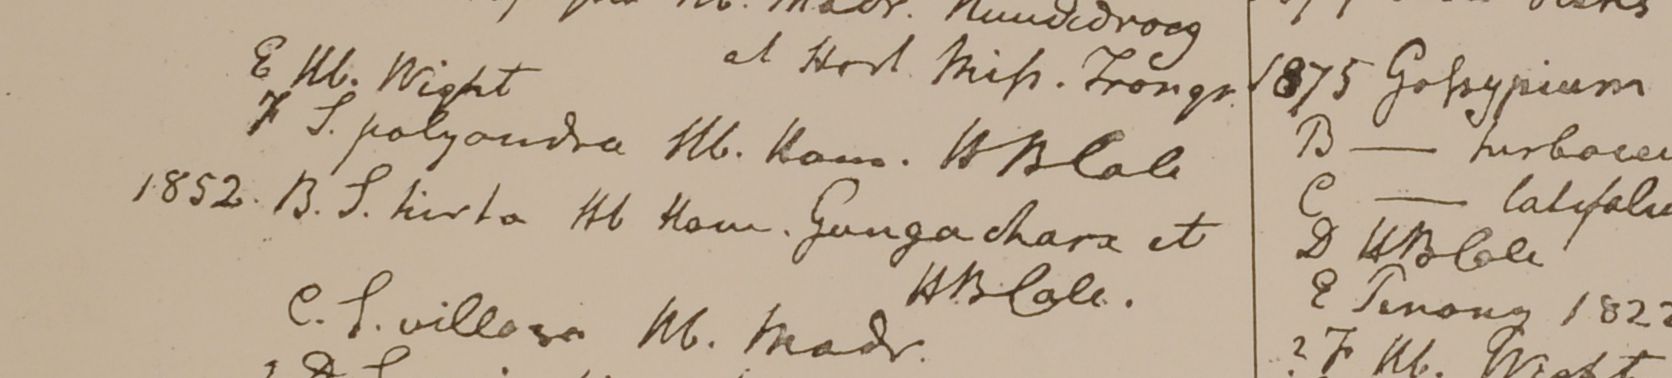 Hb. Madr. Nundidroog
et Hort Miss. Trongr.
E Hb. Wight
F S. polyandra Hb. Ham. HBCalc
1852. B. S. hirta Hb Ham. Gungachara et
HBCalc.
C. S. villosa Hb. Madr.
1875 Gossypium
B — herbaceu
C — latifoliu
D HBCalc
E Penang 1822
? F Hb. Wight